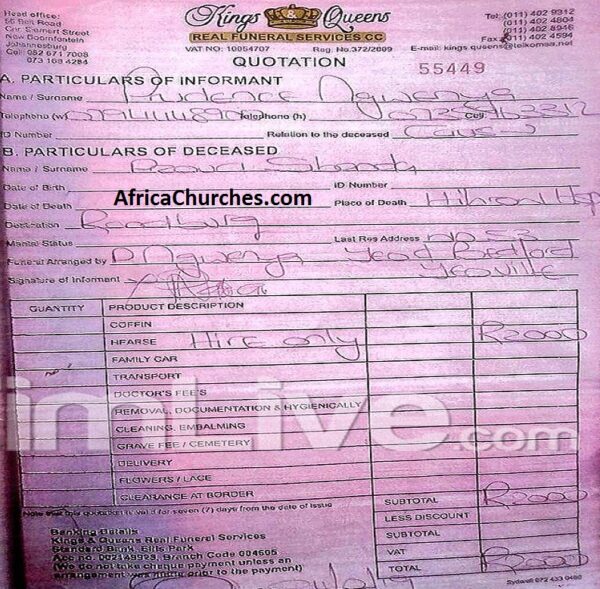 Head office:
56 Beit Road
Cnr. Siemert Street
New Doornfontein
Johannesburg
Cell: 082 671 7008
073 168 4284
Kings & Queens
REAL FUNERAL SERVICES CC
VAT NO: 10054707 Reg. No.372/2009
Tel: (011) 402 9312
(011) 402 4804
(011) 402 8916
Fax: (011) 402 4594
E-mail: kings.queens@telkomsa.net
QUOTATION
55449
A. PARTICULARS OF INFORMANT
Name / Surname Prudence Ngwenya
Telephone (w) Telephone (h) Cell:
ID Number Relation to the deceased
B. PARTICULARS OF DECEASED
Name / Surname
Date of Birth ID Number
AfricaChurches.com
Date of Death Place of Death
Destination
Marital Status Last Res Address No 53
Funeral Arranged by P Ngwenya Bedford
Signature of Informant Yeoville
QUANTITY PRODUCT DESCRIPTION
COFFIN
HEARSE Hire only R2000
FAMILY CAR
TRANSPORT
DOCTOR'S FEE'S
REMOVAL, DOCUMENTATION & HYGIENICALLY
CLEANING, EMBALMING
GRAVE FEE / CEMETERY
DELIVERY
FLOWERS / LACE
CLEARANCE AT BORDER
SUBTOTAL R2000
Note that this quotation is valid for seven (7) days from the date of issue
LESS DISCOUNT
SUBTOTAL
VAT
TOTAL R2000
Banking Details
Kings & Queens Real Funeral Services
Standard Bank, Ellis Park
Acc no. 002149923, Branch Code 004605
(We do not take cheque payment unless an
arrangement was made prior to the payment)
Sydwell 072 433 0480